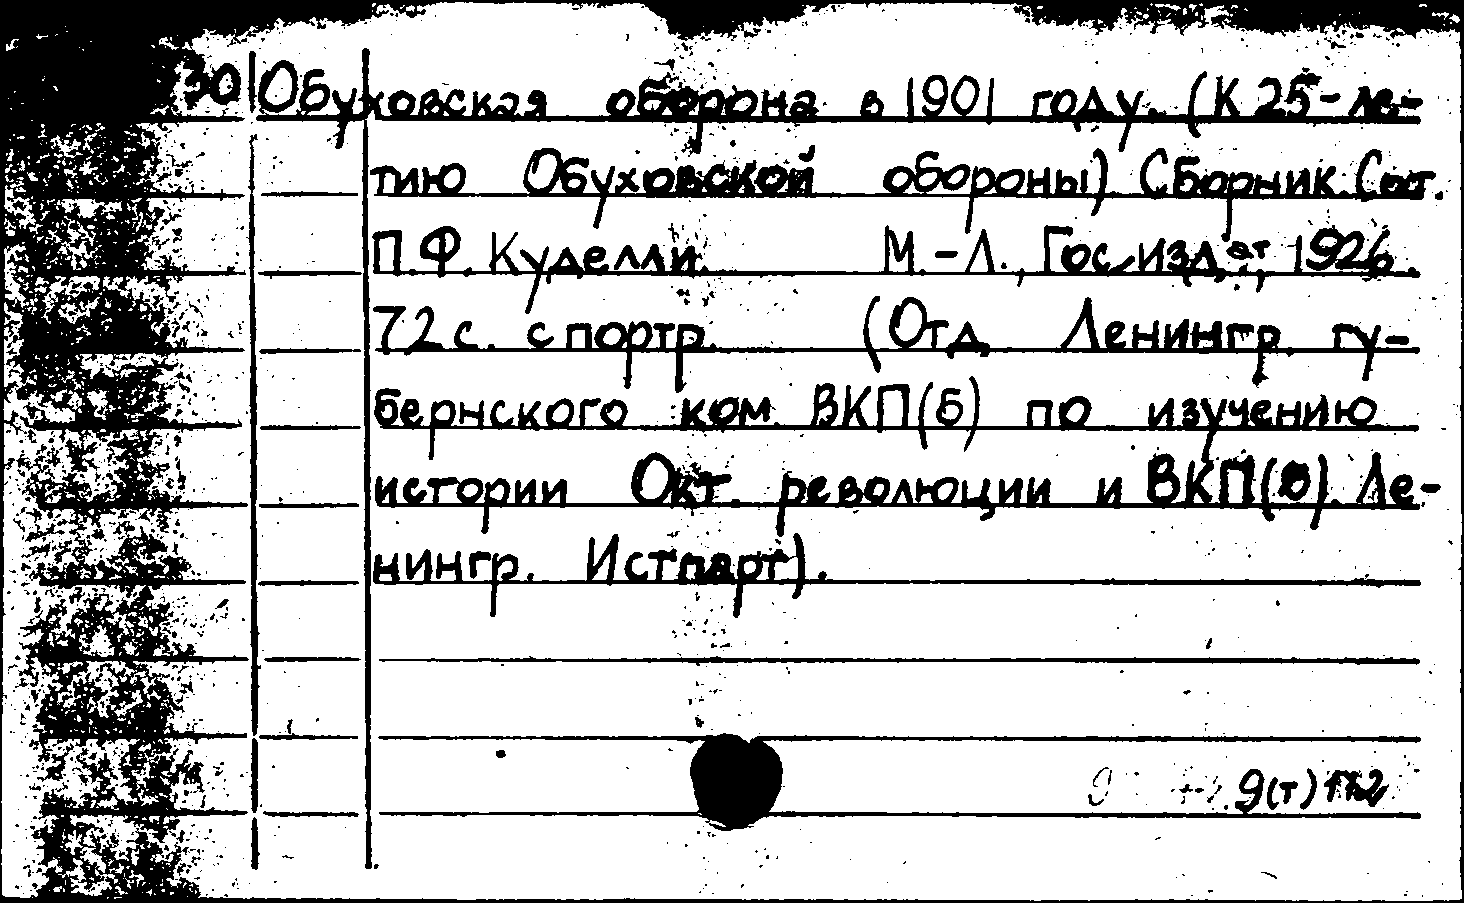 30 Обуховская оборона в 1901 году. (К 25-ле-
тию Обуховской обороны) Сборник. Сост.
П.Ф. Куделли. М.-Л., Гос. изд-ат, 1926.
72 с. с портр. (Отд. Ленингр. гу-
бернского ком. ВКП(б) по изучению
истории Окт. революции и ВКП(б). Ле-
нингр. Истпарт).
9(т)172